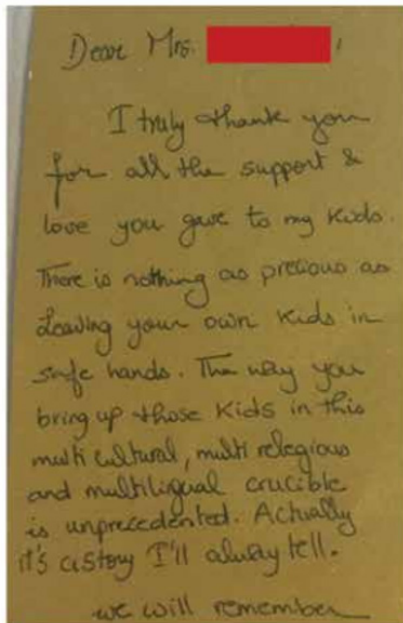 Dear Mrs. ,
I truly thank you
for all the support &
love you gave to my kids.
There is nothing as precious as
Leaving your own kids in
safe hands. The way you
bring up those Kids in this
multi cultural, multi relegious
and multiligual crucible
is unprecedented. Actually
it's a story I'll alway tell.
we will remember